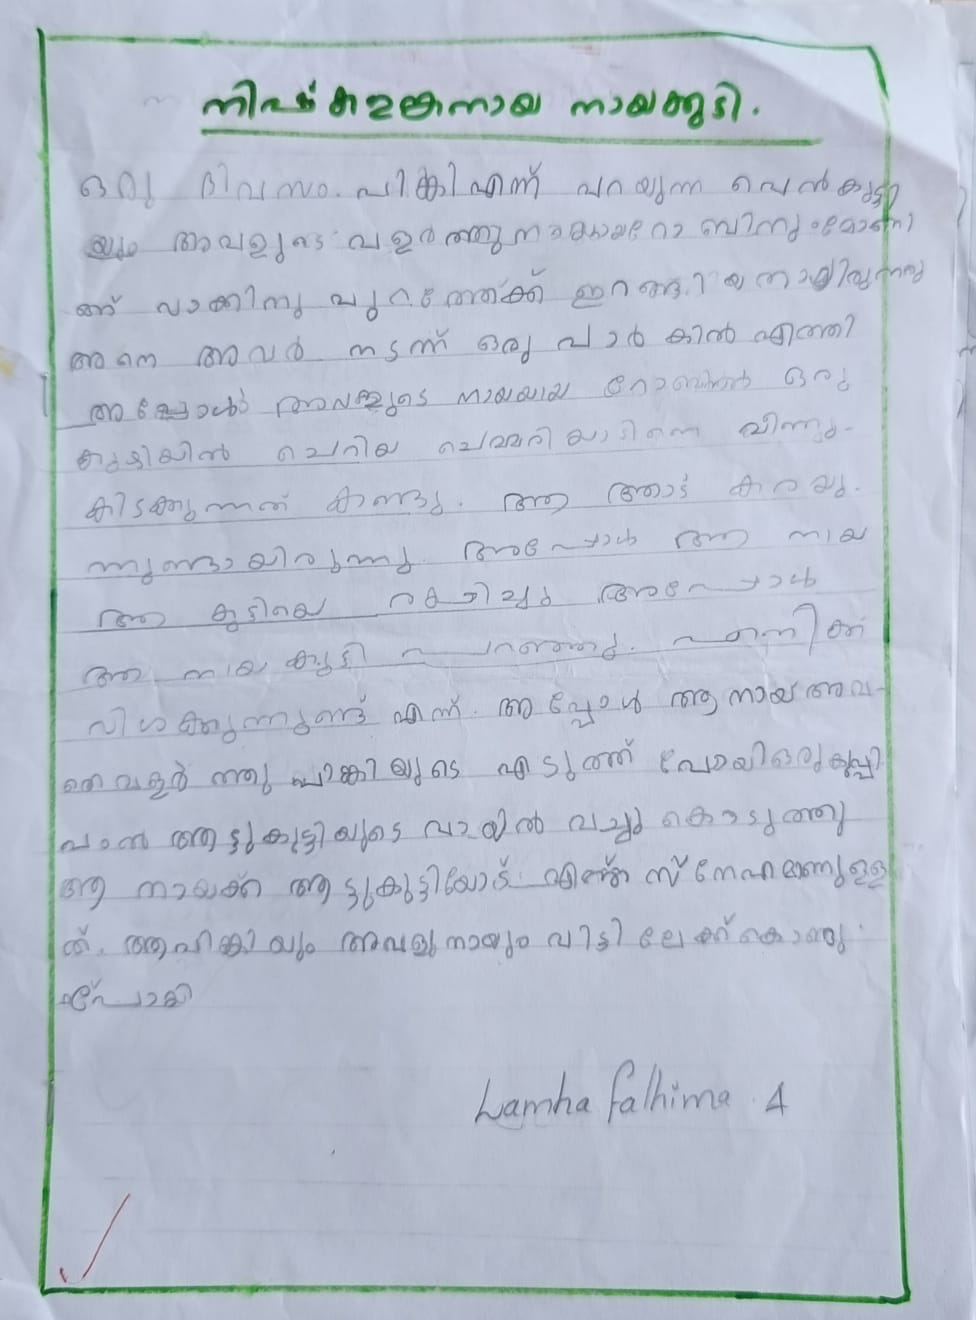 നിഷ്കളങ്കനായ നായക്കുട്ടി.
ഒരു ദിവസം. പിങ്കി എന്ന് പറയുന്ന പെൺകുട്ടി
യും അവളുടെ വളർത്തുനായയായ റോബിനും
വാക്കിനു പുറത്തേക്ക് ഇറങ്ങിയതായിരുന്നു
അങ്ങനെ അവർ നടന്ന് ഒരു പാർകിൽ എത്തി
അപ്പോൾ അവളുടെ നായയായ റോബിൻ ഒരു
കുഴിയിൽ ചെറിയ ചെമ്മരിയാടിനെ വീണു
കിടക്കുന്നത് കണ്ടു. ആ ആട് കരയു.
ന്നുണ്ടായിരുന്നു. അപ്പോൾ ആ നായ
ആ കുട്ടിയെ രക്ഷിച്ചു അപ്പോൾ
ആ നായകുട്ടി പറഞ്ഞു. എനിക്ക്
വിശക്കുന്നുണ്ട് എന്ന്. അപ്പോൾ ആ നായ അവ-
നെ വളർത്തു പിങ്കിയുടെ എടുത്ത് പോയി ഒരു കുപ്പി
പാൽ ആട്ടുകുട്ടിയുടെ വായിൽ വച്ചു കൊടുത്തു
ആ നായക്ക് ആട്ടുകുട്ടിയോട് എന്ത് സ്നേഹമാണുള്ള
ത്. ആ പിങ്കിയും അവളുനായും വീട്ടിലേക്ക് കൊണ്ടു
പോയി
Lamha Fathima 4